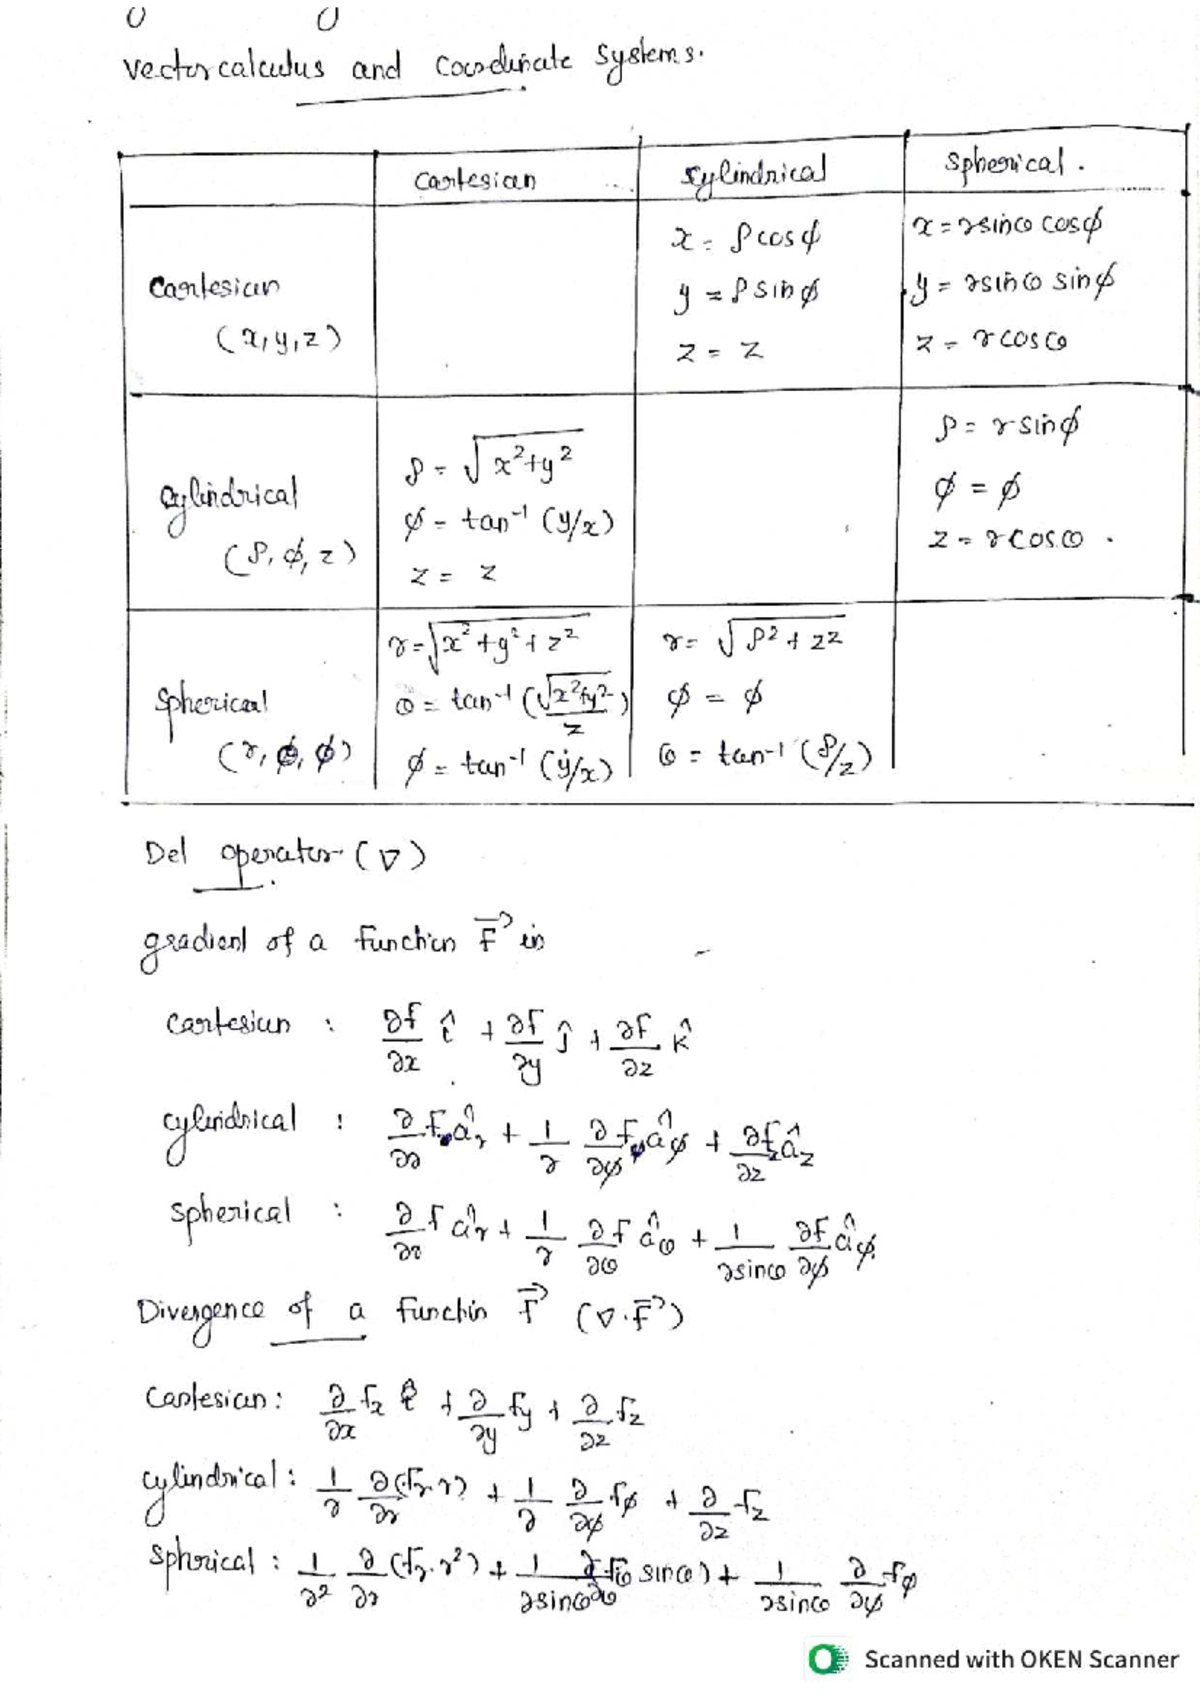 Vector calculus and Coordinate Systems.
Cartesian Cylindrical Spherical.
Cartesian (x, y, z)
x = ρcosϕ
y = ρsinϕ
z = z
x = rsinθ cosϕ
y = rsinθ sinϕ
z = rcosθ
Cylindrical (ρ, ϕ, z)
ρ = √(x²+y²)
ϕ = tan⁻¹ (y/x)
z = z
ρ = rsinϕ
ϕ = ϕ
z = rcosθ.
Spherical (r, θ, ϕ)
r = √(x²+y²+z²)
θ = tan⁻¹ (√(x²+y²)/z)
ϕ = tan⁻¹ (y/x)
r = √(ρ²+z²)
ϕ = ϕ
θ = tan⁻¹ (ρ/z)
Del operator (∇)
gradient of a function F⃗ in
Cartesian : ∂f/∂x î + ∂f/∂y ĵ + ∂f/∂z k̂
cylindrical : ∂/∂r f âr + 1/r ∂/∂ϕ f âϕ + ∂fz/∂z âz
spherical : ∂/∂r f âr + 1/r ∂/∂θ f âθ + 1/rsinθ ∂f/∂ϕ âϕ.
Divergence of a function F⃗ (∇·F⃗)
Cartesian: ∂/∂x fx î + ∂/∂y fy + ∂/∂z fz
cylindrical: 1/r ∂(fr.r)/∂r + 1/r ∂/∂ϕ fϕ + ∂/∂z fz
Spherical: 1/r² ∂/∂r (fr.r²) + 1/rsinθ ∂/∂θ fθ sinθ) + 1/rsinθ ∂/∂ϕ fϕ
Scanned with OKEN Scanner